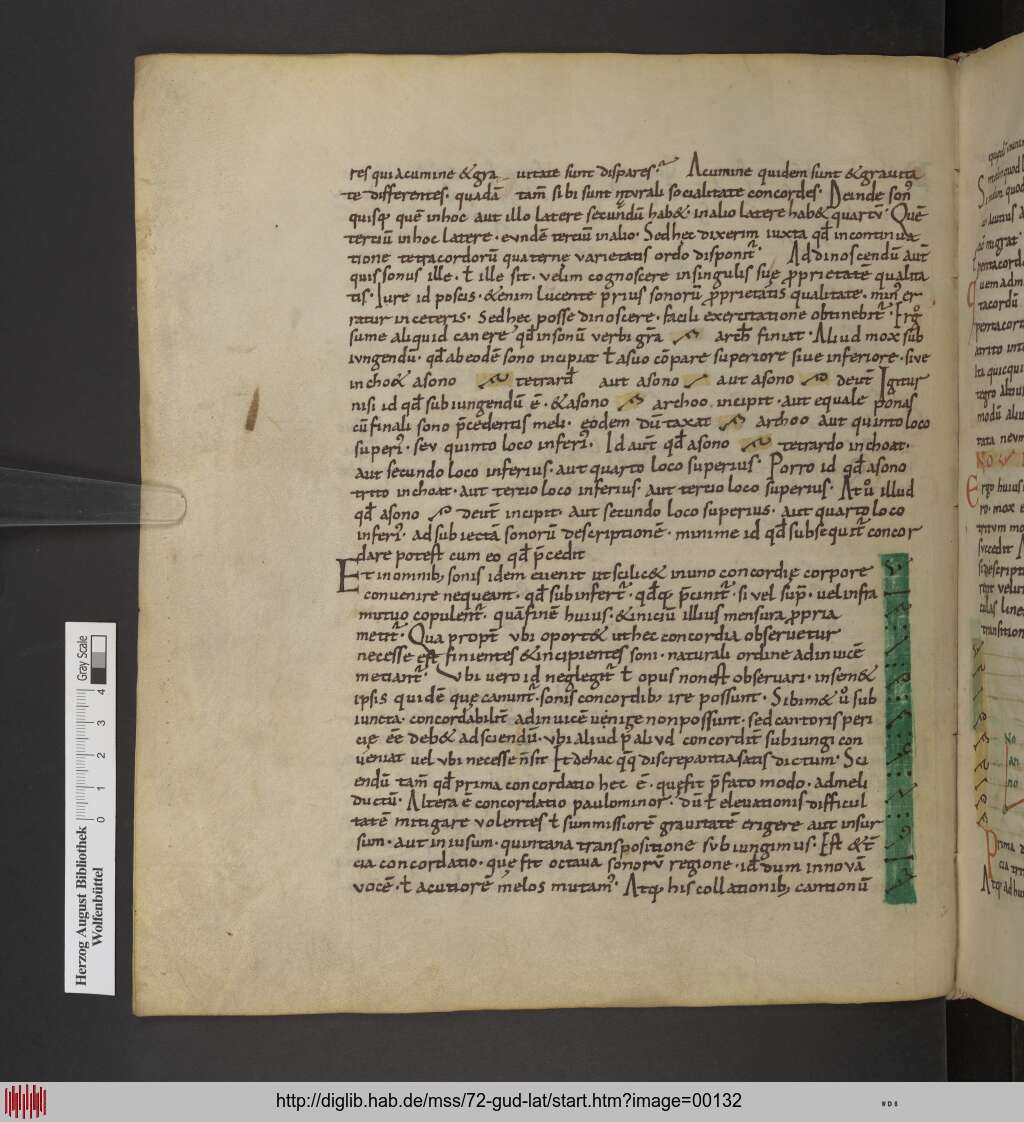 res qui acumine & gra uitate sunt dispares. Acumine quidem sunt & grauita
te differentes. quadā tam̄ sibi sunt naturali socialitate concordes. Deinde son̄
quisq; quē in hoc aut illo latere secundū hab&. in alio latere hab& quartū. Quē
tertiū in hoc latere. eundē tertiū in alio. Sed hec dixerim iuxta qđ in continua
tione tetracordorū quaterne varietatis ordo disponit̄. Ad dinoscendū aut̄
quis sonus ille. ł ille sit. velim cognoscere in singulis suę p̄prietatē qualita
tis. Iure id poscis. & enim lucente prius sonorū p̄prietatis qualitate. min; er
ratur in ceteris. Sed hec posse dinoscere. facili exercitatione obtinebit̄. Ergͦ
sume aliquid canere qđ in sonū verbi gr̄a arch̄ finiat. Aliud mox sub
iungendū. qđ ab eodē sono incipiat ł a suo cōpare superiore siue inferiore. siue
incho& a sono tetrarđ aut a sono aut a sono deut̄ Igitur
nisi id qđ sub iungendū ē. & a sono archoo incipit. aut equale ponas
cū finali sono p̄cedentis meli. eodem dū taxat archoo aut quinto loco
superi. seu quinto loco inferi. Id aut̄ qđ a sono tetrardo inchoat.
aut secundo loco inferius. aut quarto loco superius. Porro id qđ a sono
trito inchoat. aut tertio loco inferius. aut tertio loco superius. At ů illud
qđ a sono deut̄ incipit. aut secundo loco superius. aut quarto loco
inferi. ad subiectā sonorū descriptionē. minime id qđ subsequit̄ concor
dare potest cum eo qđ p̄cedit
Et in omnib; sonis idem euenit ut scilic& in uno concordię corpore
conuenire nequeant. qđ sub infert̄. qđq; p̄cinit̄. si vel sup̄. uel infra
mutuo copulent̄. quā finē huius. & iniciū illius mensura p̄pria
metit̄. Qua propt̄ vbi oport& ut hec concordia obseruetur
necesse est finientes & incipientes soni. naturali ordine ad inuicē
metiant̄. Vbi uero id neglegit̄ ł opus non est obseruari. in sem&
ipsis quidē que canunt̄. sonis concordib; ire possunt. Sibim& ů sub
iuncta. concordabilit̄ ad inuicē uenire non possunt. sed cantoris peri
cię ēē deb& ad sciendū. vbi aliud p̄ aliud concordit̄ subiungi con
ueniat uel ubi necesse n̄ sit Et de hac q̄q̄ discrepantia satis dictum. Sci
endū tam̄ qđ prima concordatio hec ē. que fit p̄fato modo. ad meli
ductū. Altera ē concordatio paulo minor. dū ł eleuationis difficul
tatē mitigare volentes ł summissiorē grauitatē erigere aut in sur
sum. aut in iusum. quintana transpositione subiungimus. Est & t̄
cia concordatio. que fit octaua sonorū regione. id dum in nouā
vocē. ł acutiorē melos mutam;. Atq; his collationib; cantionū
Herzog August Bibliothek
Wolfenbüttel
Gray Scale
0 1 2 3 4
http://diglib.hab.de/mss/72-gud-lat/start.htm?image=00132